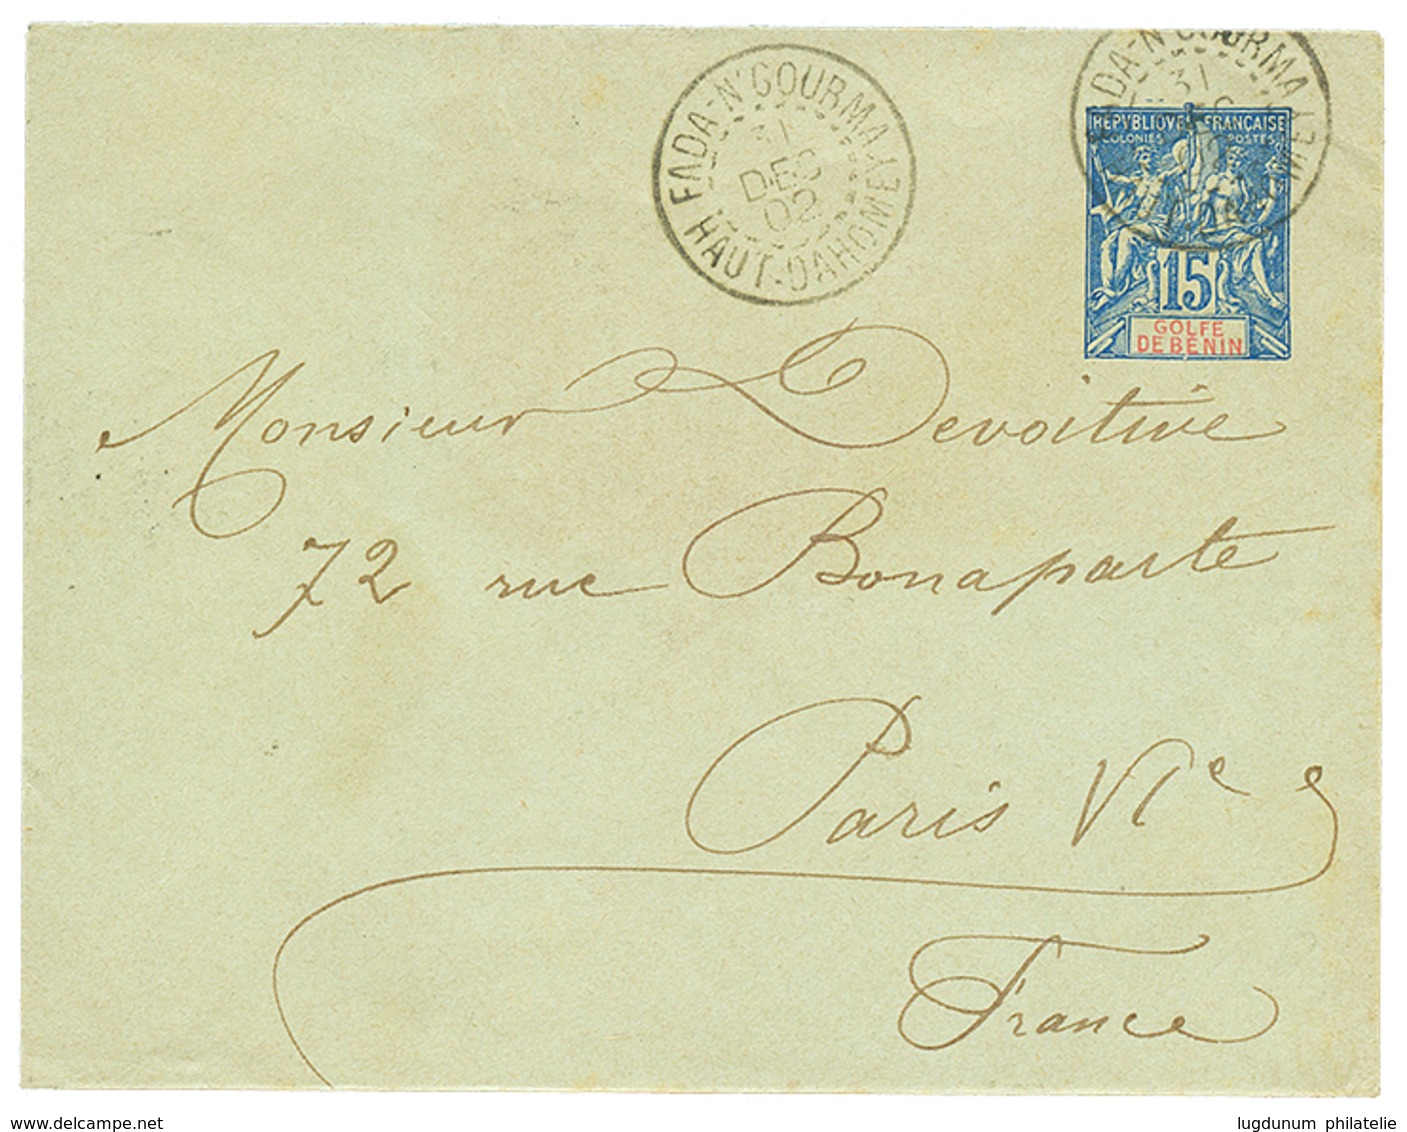 FADA-N'GOURMA
31
DEC
02
HAUT-DAHOMEY
FADA-N'GOURMA
31
REPVBLIQVE FRANÇAISE
COLONIES POSTES
15
GOLFE
DE BÉNIN
Monsieur Devoitine
72 rue Bonaparte
Paris VIe
France
www.delcampe.net
lugdunum philatelie